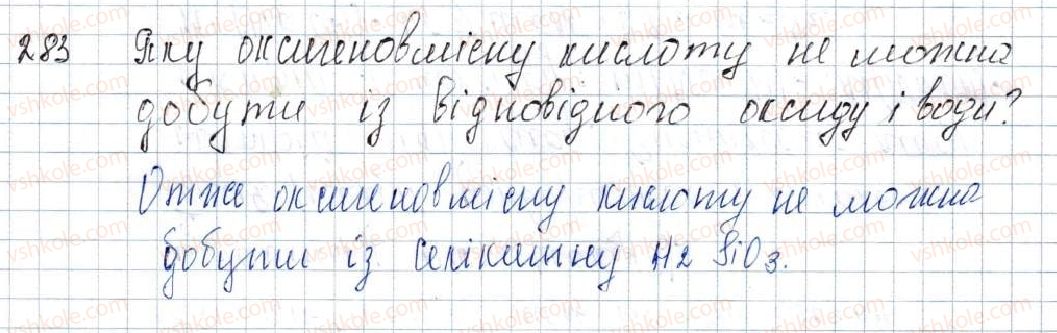 283 Яку оксигеновмісну кислоту не можна
добути із відповідного оксиду і води?
Отже оксигеновмісну кислоту не можна
добути із селікатну H2 SiO3.